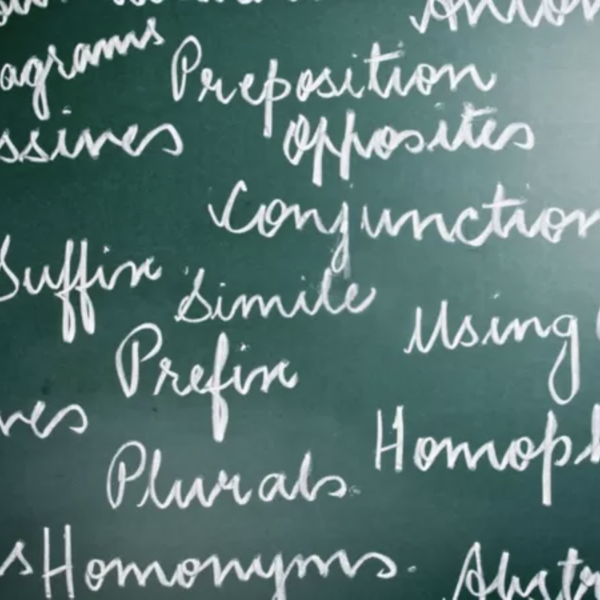 agrams Preposition
ssives Opposites
Conjunction
Suffix Simile Using
Prefix
ves Homoph
Plurals
s Homonyms. Abstr